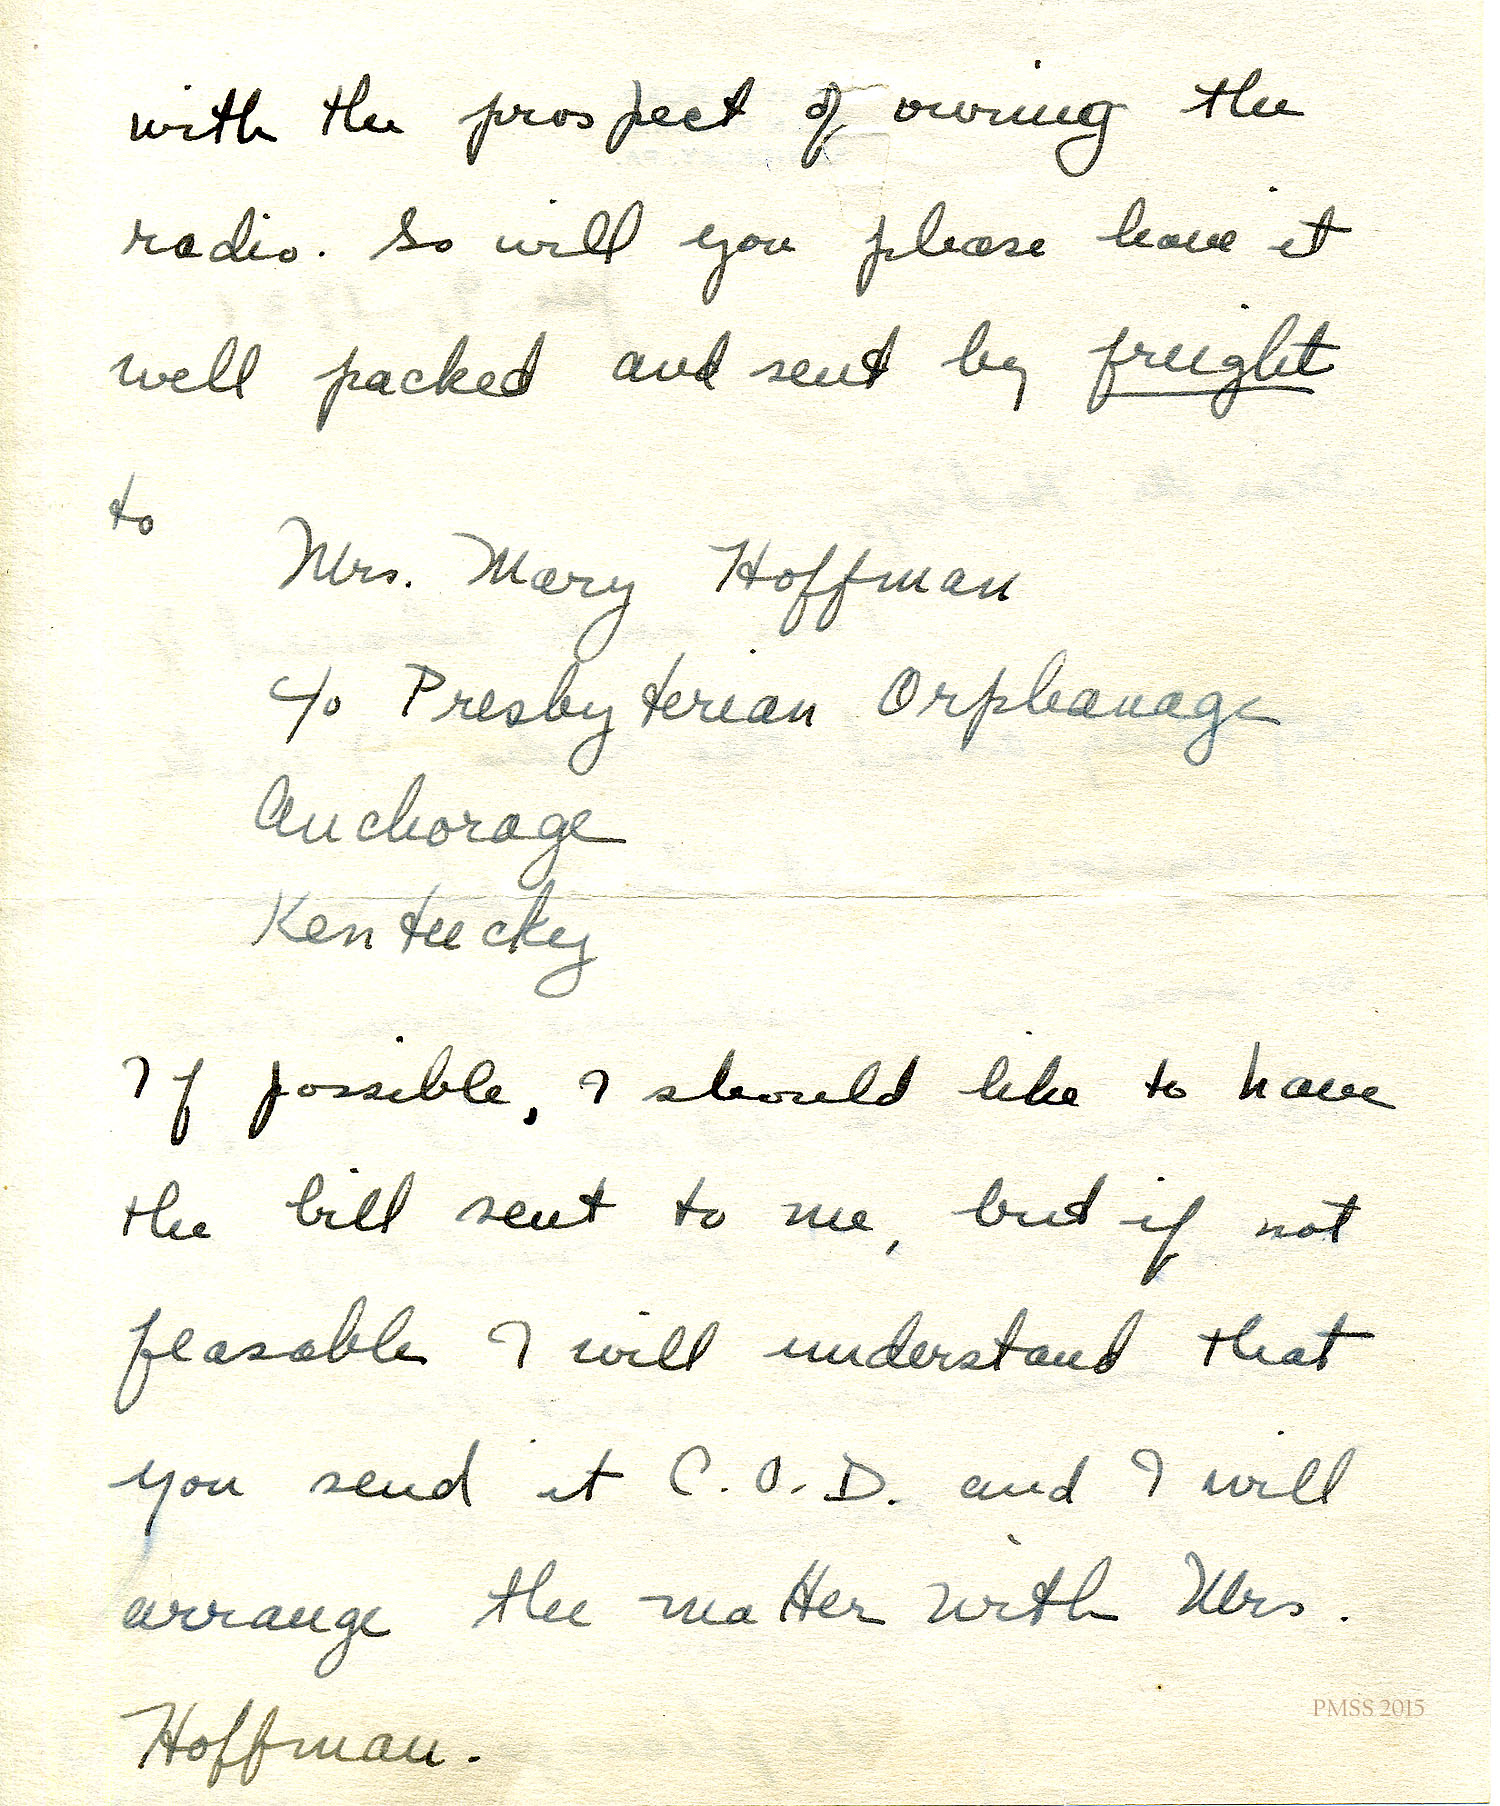 with the prospect of owning the
radio. So will you please have it
well packed and sent by freight
to
Mrs. Mary Hoffman
c/o Presbyterian Orphanage
Anchorage
Kentucky
If possible, I should like to have
the bill sent to me, but if not
feasable I will understand that
you send it C.O.D. and I will
arrange the matter with Mrs.
Hoffman.
PMSS 2015